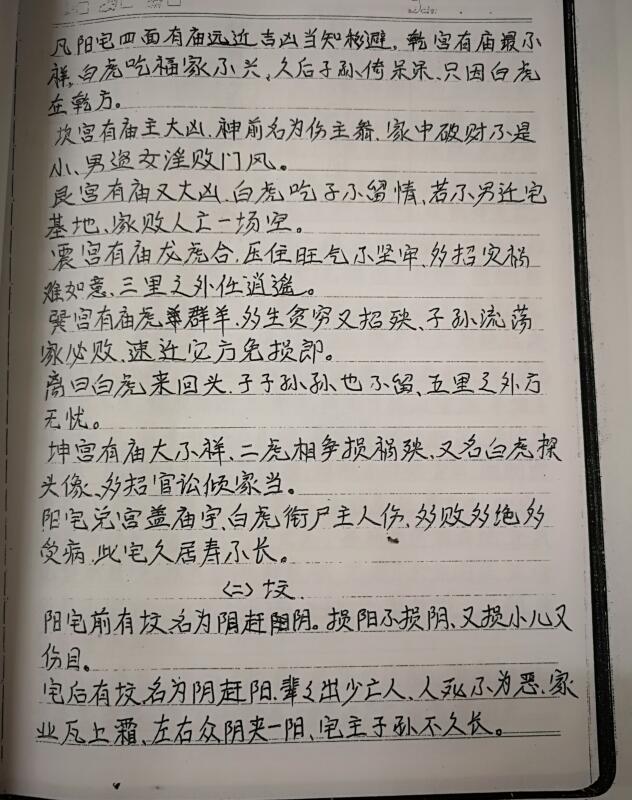 凡阳宅四面有庙远近吉凶当知移避,乾宫有庙最不
祥,白虎吃福家不兴、久后子孙倚呆呆、只因白虎
在乾方。
坎宫有庙主大凶.神前名为伤主船.家中破财不是
小、男盗女淫败门风。
艮宫有庙又大凶.白虎吃子不留情、若不另迁宅
基地、家败人亡一场空。
震宫有庙龙虎合.压住旺气不坚牢、多招灾祸
难如意、三里之外任逍遥。
巽宫有庙虎奔群羊.多生贫穷又招殃、子孙流荡
家必败、速迁它方免损郎。
离曰白虎来回头.子子孙孙也不留、五里之外方
无忧。
坤宫有庙大不祥、二虎相争损祸殃、又名白虎探
头像、多招官讼倾家当。
阳宅兑宫盖庙宇、白虎衔尸主人伤、多败多绝多
受病.此宅久居寿不长。
〈二〉坟.
阳宅前有坟.名为阴赶阳阴。损阳不损阴、又损小儿又
伤目。
宅后有坟.名为阴赶阳.辈々出少亡人、人死不为恶.家
业瓦上霜、左右众阴夹一阳、宅主子孙不久长。